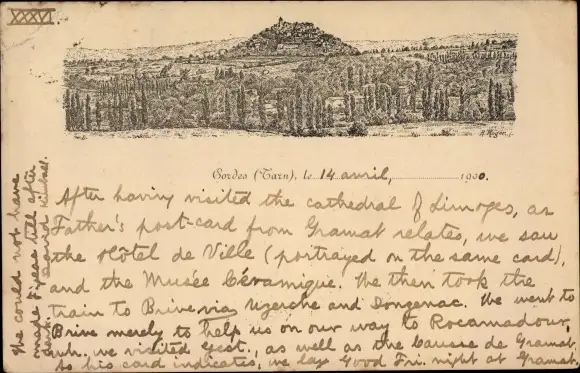 XXXVI.
Cordes (Tarn), le 14 avril, 1900.
After having visited the cathedral of Limoges, as
Father's post-card from Gramat relates, we saw
the Hôtel de Ville (portrayed on the same card),
and the Musée Céramique. We then took the
train to Brive via Uzerche and Donzenac. We went to
Brive merely to help us on our way to Rocamadour,
wh. we visited yest., as well as the Causse de Gramat.
As his card indicates, we lay Good Fri. night at Gramat.
We could not have
made Figeac till after
dark.